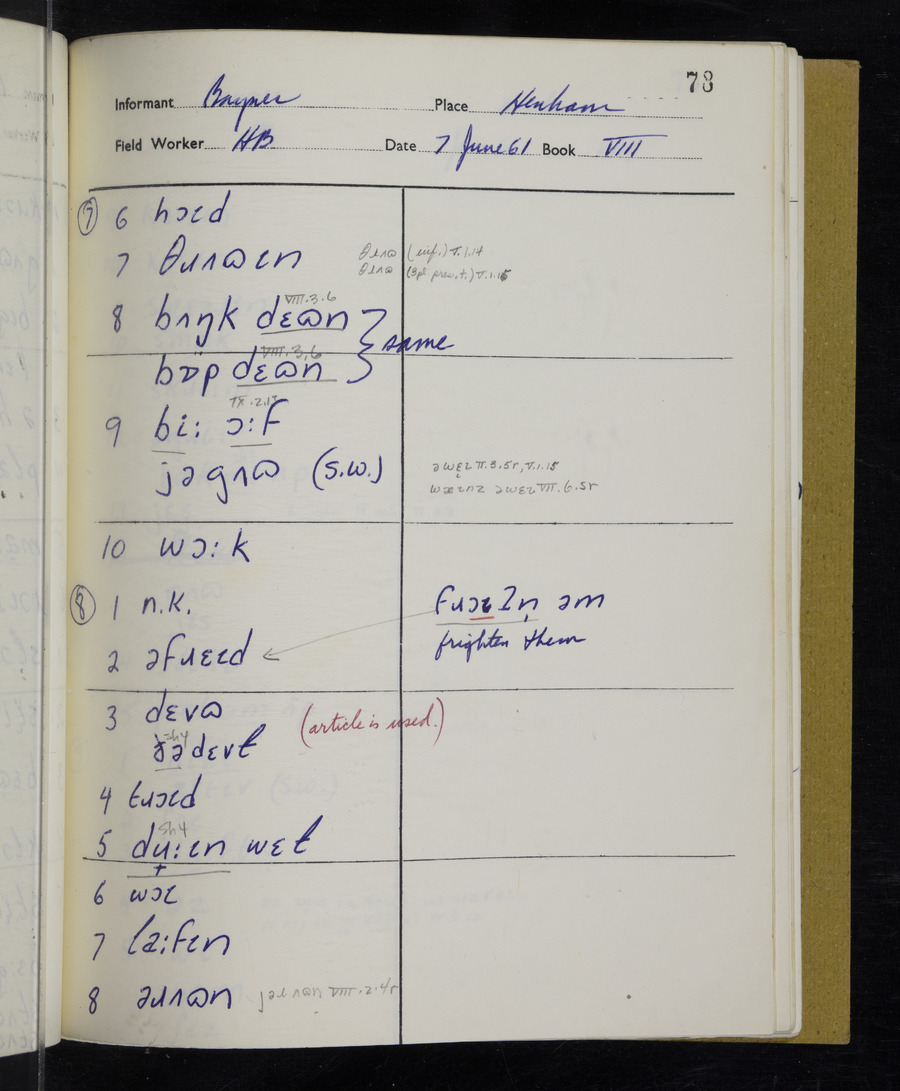 73
Informant Bayner Place Henham
Field Worker HB Date 7 June 61 Book VIII
⑦ 6 hɔɪd
7 θɹʌɷɪn θɹʌɷ (inf.) V.1.14
θɹʌɷ (3pl. pres. t.) V.1.15
8 bʌŋk dɛɷn VIII.3.6
same
bɒ̈p dɛɷn VIII.3.6
9 bi: ɔ:f IX.2.17
jəgʌɷ (S.W.) əwɛɪ II.3.5r, V.1.15
əwɛɪ VII.6.5r
10 wɔ:k
⑧ 1 n.k. fɹɔɪʔn̩ əm
frighten them
2 əfɹɛɪd
3 dɛvɷ (article is used.)
ðə dɛvɫ sh4
4 tɹɔɪd
5 dʉ:ɪn wɛt sh4
6 wɔɪ
7 lɑ:fɪn
8 əɹʌɷn VIII.2.4r